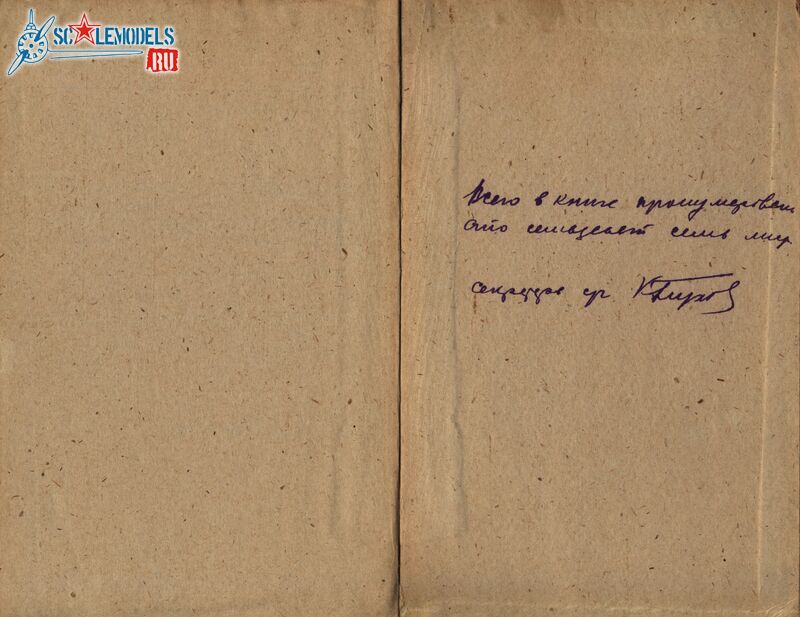 SCALEMODELS
RU
Всего в книге пронумерован
сто семьдесят семь
секретарь